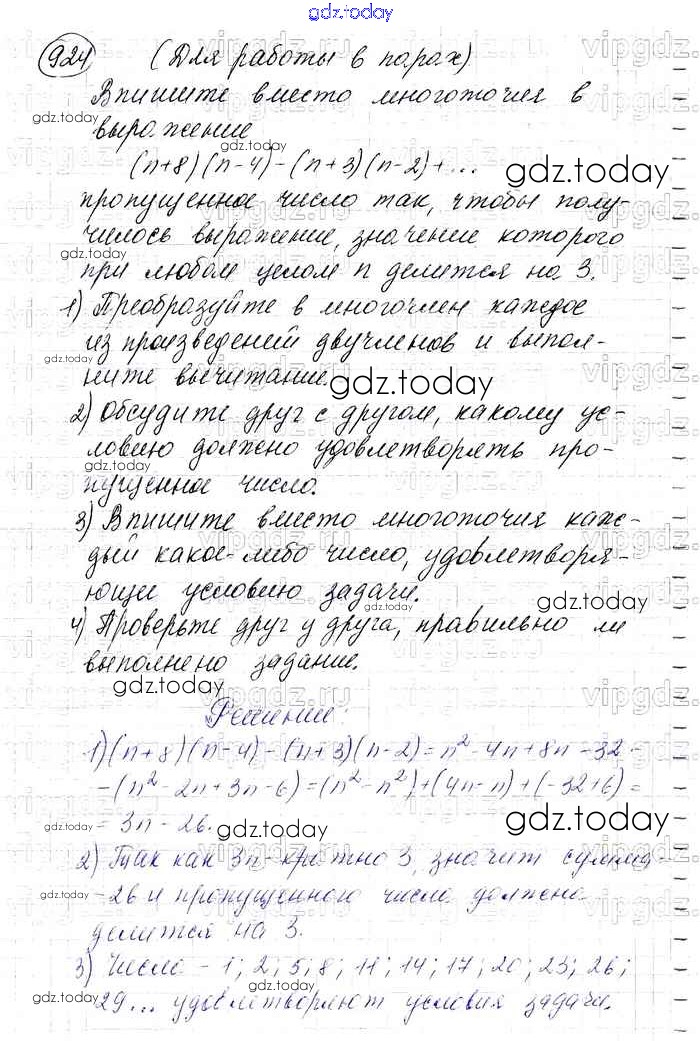 gdz.today
924 (Для работы в парах)
Впишите вместо многоточия в
выражение
(n+8)(n-4)-(n+3)(n-2)+...
пропущенное число так, чтобы полу-
чилось выражение, значение которого
при любом целом n делится на 3.
1) Преобразуйте в многочлен каждое
из произведений двучленов и выпол-
ните вычитание.
2) Обсудите друг с другом, какому ус-
ловию должно удовлетворять про-
пущенное число.
3) Впишите вместо многоточия каж-
дый какое-либо число, удовлетворя-
ющее условию задачи.
4) Проверьте друг у друга, правильно ли
выполнено задание.
Решение:
1)(n+8)(n-4)-(n+3)(n-2)=n²-4n+8n-32-
-(n²-2n+3n-6)=(n²-n²)+(4n-n)+(-32+6)=
=3n-26.
2) Так как 3n-кратно 3, значит сумма
-26 и пропущенного числа должна
делится на 3.
3) Число -1; 2; 5; 8; 11; 14; 17; 20; 23; 26;
29... удовлетворяют условия задачи.